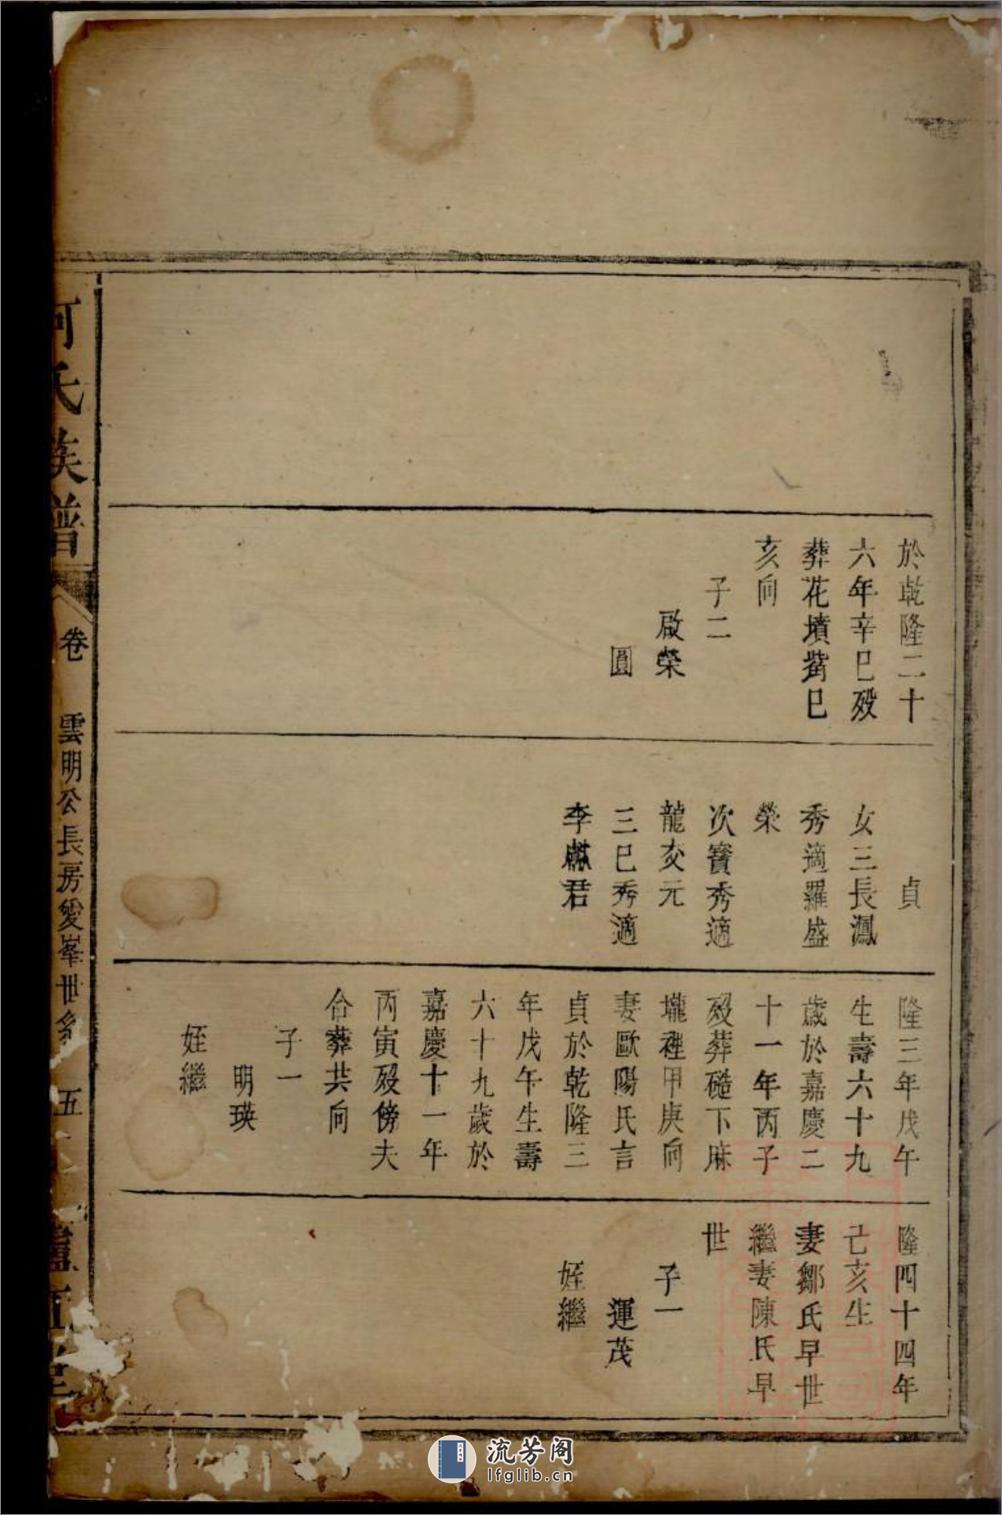 於乾隆二十
六年辛巳歿
葬花墳觜巳
亥向
子二
啟榮
圓
貞
女三長鳳
秀適羅盛
榮
次寶秀適
龍交元
三巳秀適
李麟君
隆三年戊午
生壽六十九
歲於嘉慶二
十一年丙子
歿葬磴下麻
壠裡甲庚向
妻歐陽氏言
貞於乾隆三
年戊午生壽
六十九歲於
嘉慶十一年
丙寅歿傍夫
合葬共向
子一
明瑛
姪繼
隆四十四年
己亥生
妻鄒氏早世
繼妻陳氏早
世
子一
運茂
姪繼
何氏族譜
卷
雲明公長房愛峯世系
五
流芳阁
lfglib.cn